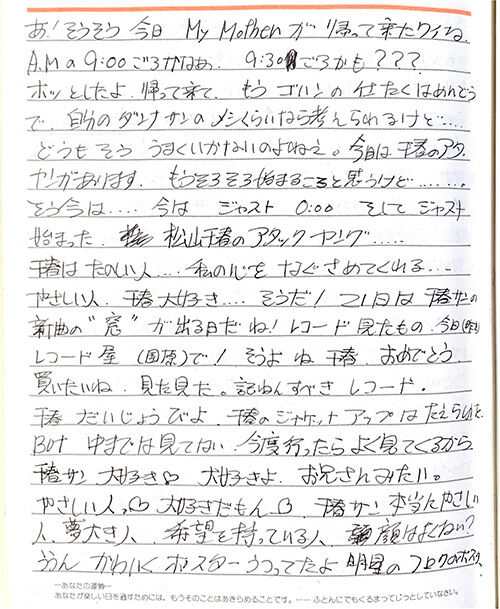 あ!そうそう 今日 My Mother が 帰って来たワイね.
A.M a 9:00ごろかなあ. 9:30ごろかも???
ホッとしたよ.帰って来て. もう ゴハンの仕たくはめんどう
で. 自分のダンナサンのメシくらいなら考えられるけど.....
どうもそう うまくいかないのよねえ。今日は千春のアタ.
ヤンがあります. もうそろそろ始まることと思うけど........
そう今は..... 今は ジャスト 0:00 そして ジャスト
始まった. 松山千春のアタック ヤング.....
千春はたのしい人.... 私の心を なぐさめてくれる...
やさしい人. 千春大好き.... そうだ! 21日は 千春サンの
新曲の"窓"が出る日だね!レコード見たもの.今日(昨)
レコード屋(国原)で! そうよね 千春. おめでとう.
買いたいね.見た見た。記ねんすべき レコード.
千春 だいじょうびよ.千春のジャケットアップはたえられた.
But 中までは見てない.今度行ったらよく見てくるから.
千春サン 大好き♡ 大好きよ. お兄さんみたい。
やさしい人♡ 大好きだもん♡ 千春サン 本当にやさしい
人.夢大き人 希望を持っている人 顔はよくない?
ううん かわいく ポスター うつってたよ 明星の フロクのポスター
―あなたの運勢―
あなたが楽しい日を過すためには,もうそのことはあきらめることです。……ふとんにでもくるまってじっとしていなさい。